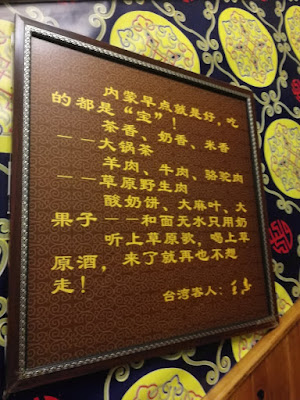 内蒙早点就是好，吃
的都是“宝”！
茶香、奶香、米香
——大锅茶
羊肉、牛肉、骆驼肉
——草原野生肉
酸奶饼、大麻叶、大
果子——和面无水只用奶
听上草原歌，喝上草
原酒，来了就再也不想
走！
台湾客人：